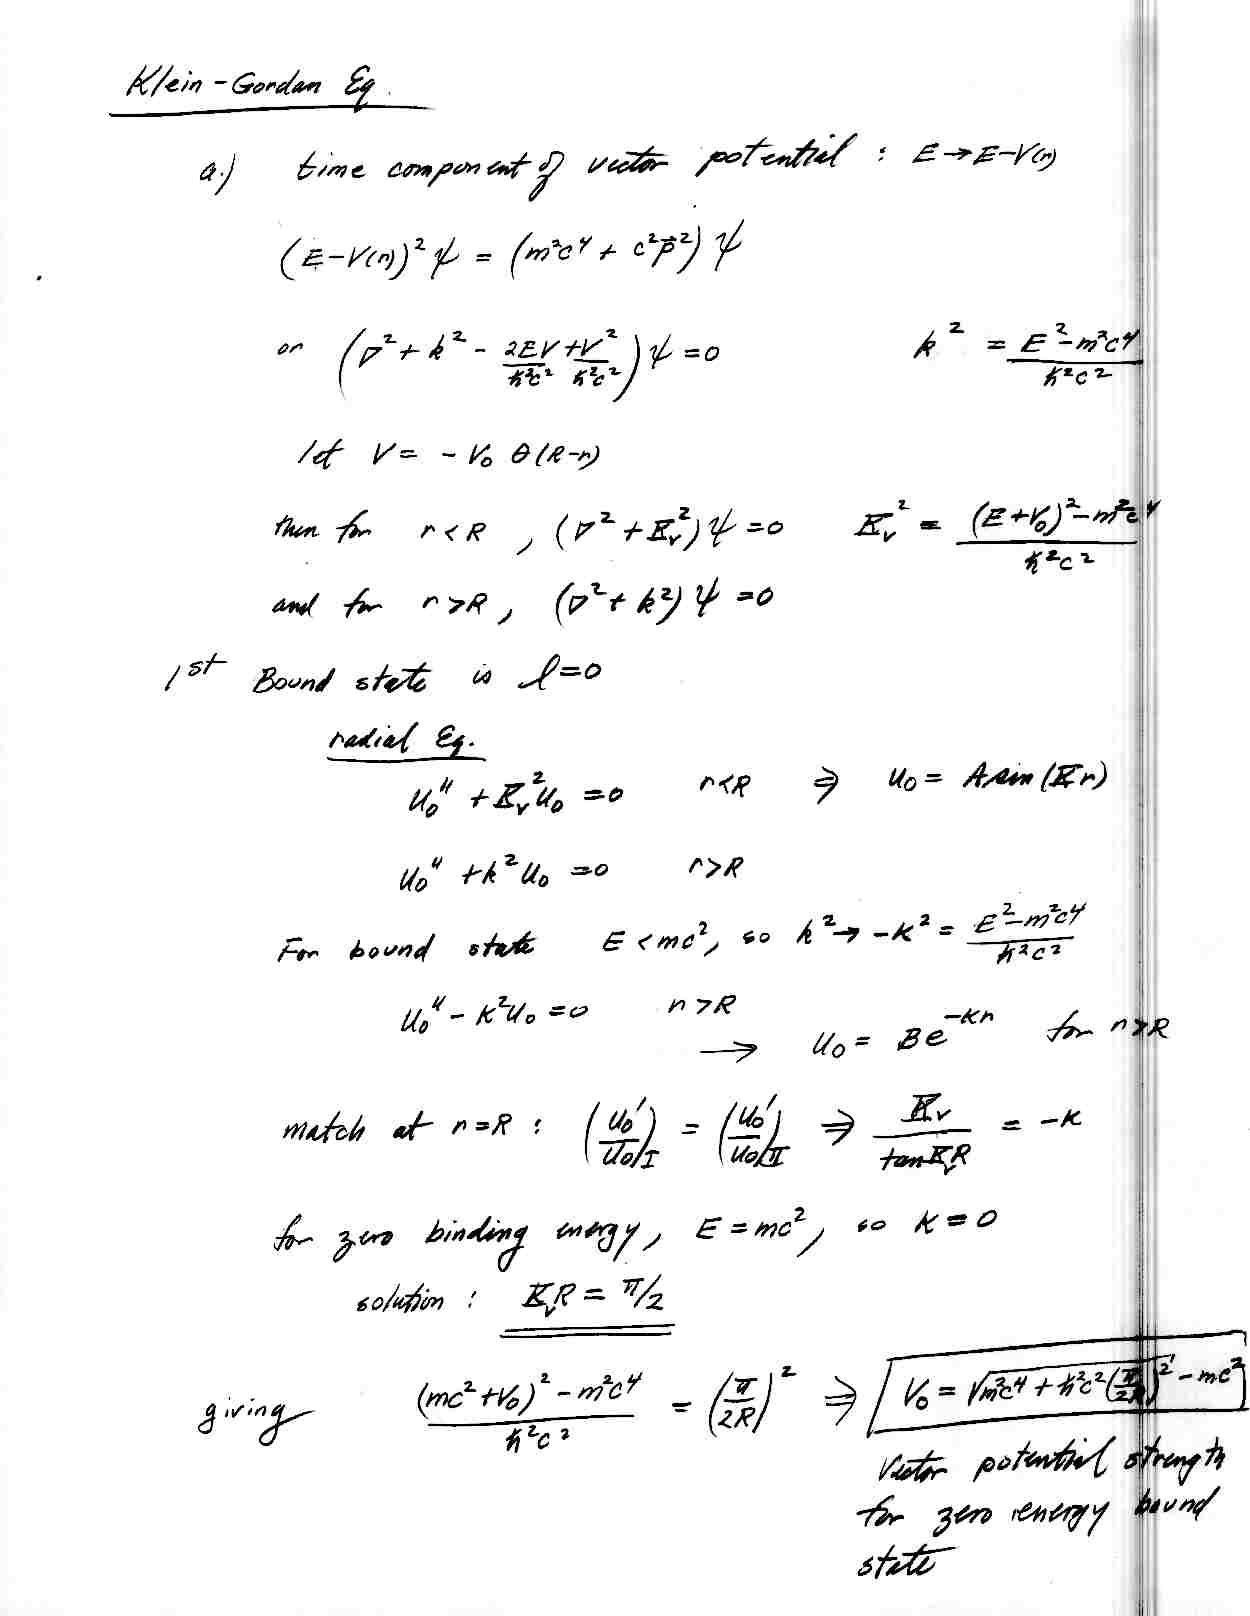 Klein-Gordan Eq.
a.) time component of vector potential : E → E-V(r)
(E-V(r))² ψ = (m²c⁴ + c²p⃗²) ψ
or (∇² + k² - 2EV/ħ²c² + V²/ħ²c²) ψ = 0 k² = (E²-m²c⁴)/ħ²c²
let V = - V₀ θ(R-r)
then for r < R , (∇² + K_v²) ψ = 0 K_v² = ((E+V₀)² - m²c⁴)/ħ²c²
and for r > R , (∇² + k²) ψ = 0
1st Bound state is l=0
radial Eq.
u₀'' + K_v² u₀ = 0 r<R ⇒ u₀ = A sin(Kr)
u₀'' + k² u₀ = 0 r>R
For bound state E < mc², so k² → -κ² = (E²-m²c⁴)/ħ²c²
u₀'' - κ² u₀ = 0 r>R
→ u₀ = B e^{-κr} for r>R
match at r=R : (u₀'/u₀)_I = (u₀'/u₀)_II ⇒ K_v/tan K_v R = -κ
for zero binding energy, E = mc², so κ = 0
solution : K_v R = π/2
giving ((mc²+V₀)² - m²c⁴)/ħ²c² = (π/2R)² ⇒ V₀ = √(m²c⁴ + ħ²c² (π/2R)²) - mc²
Vector potential strength
for zero energy bound
state